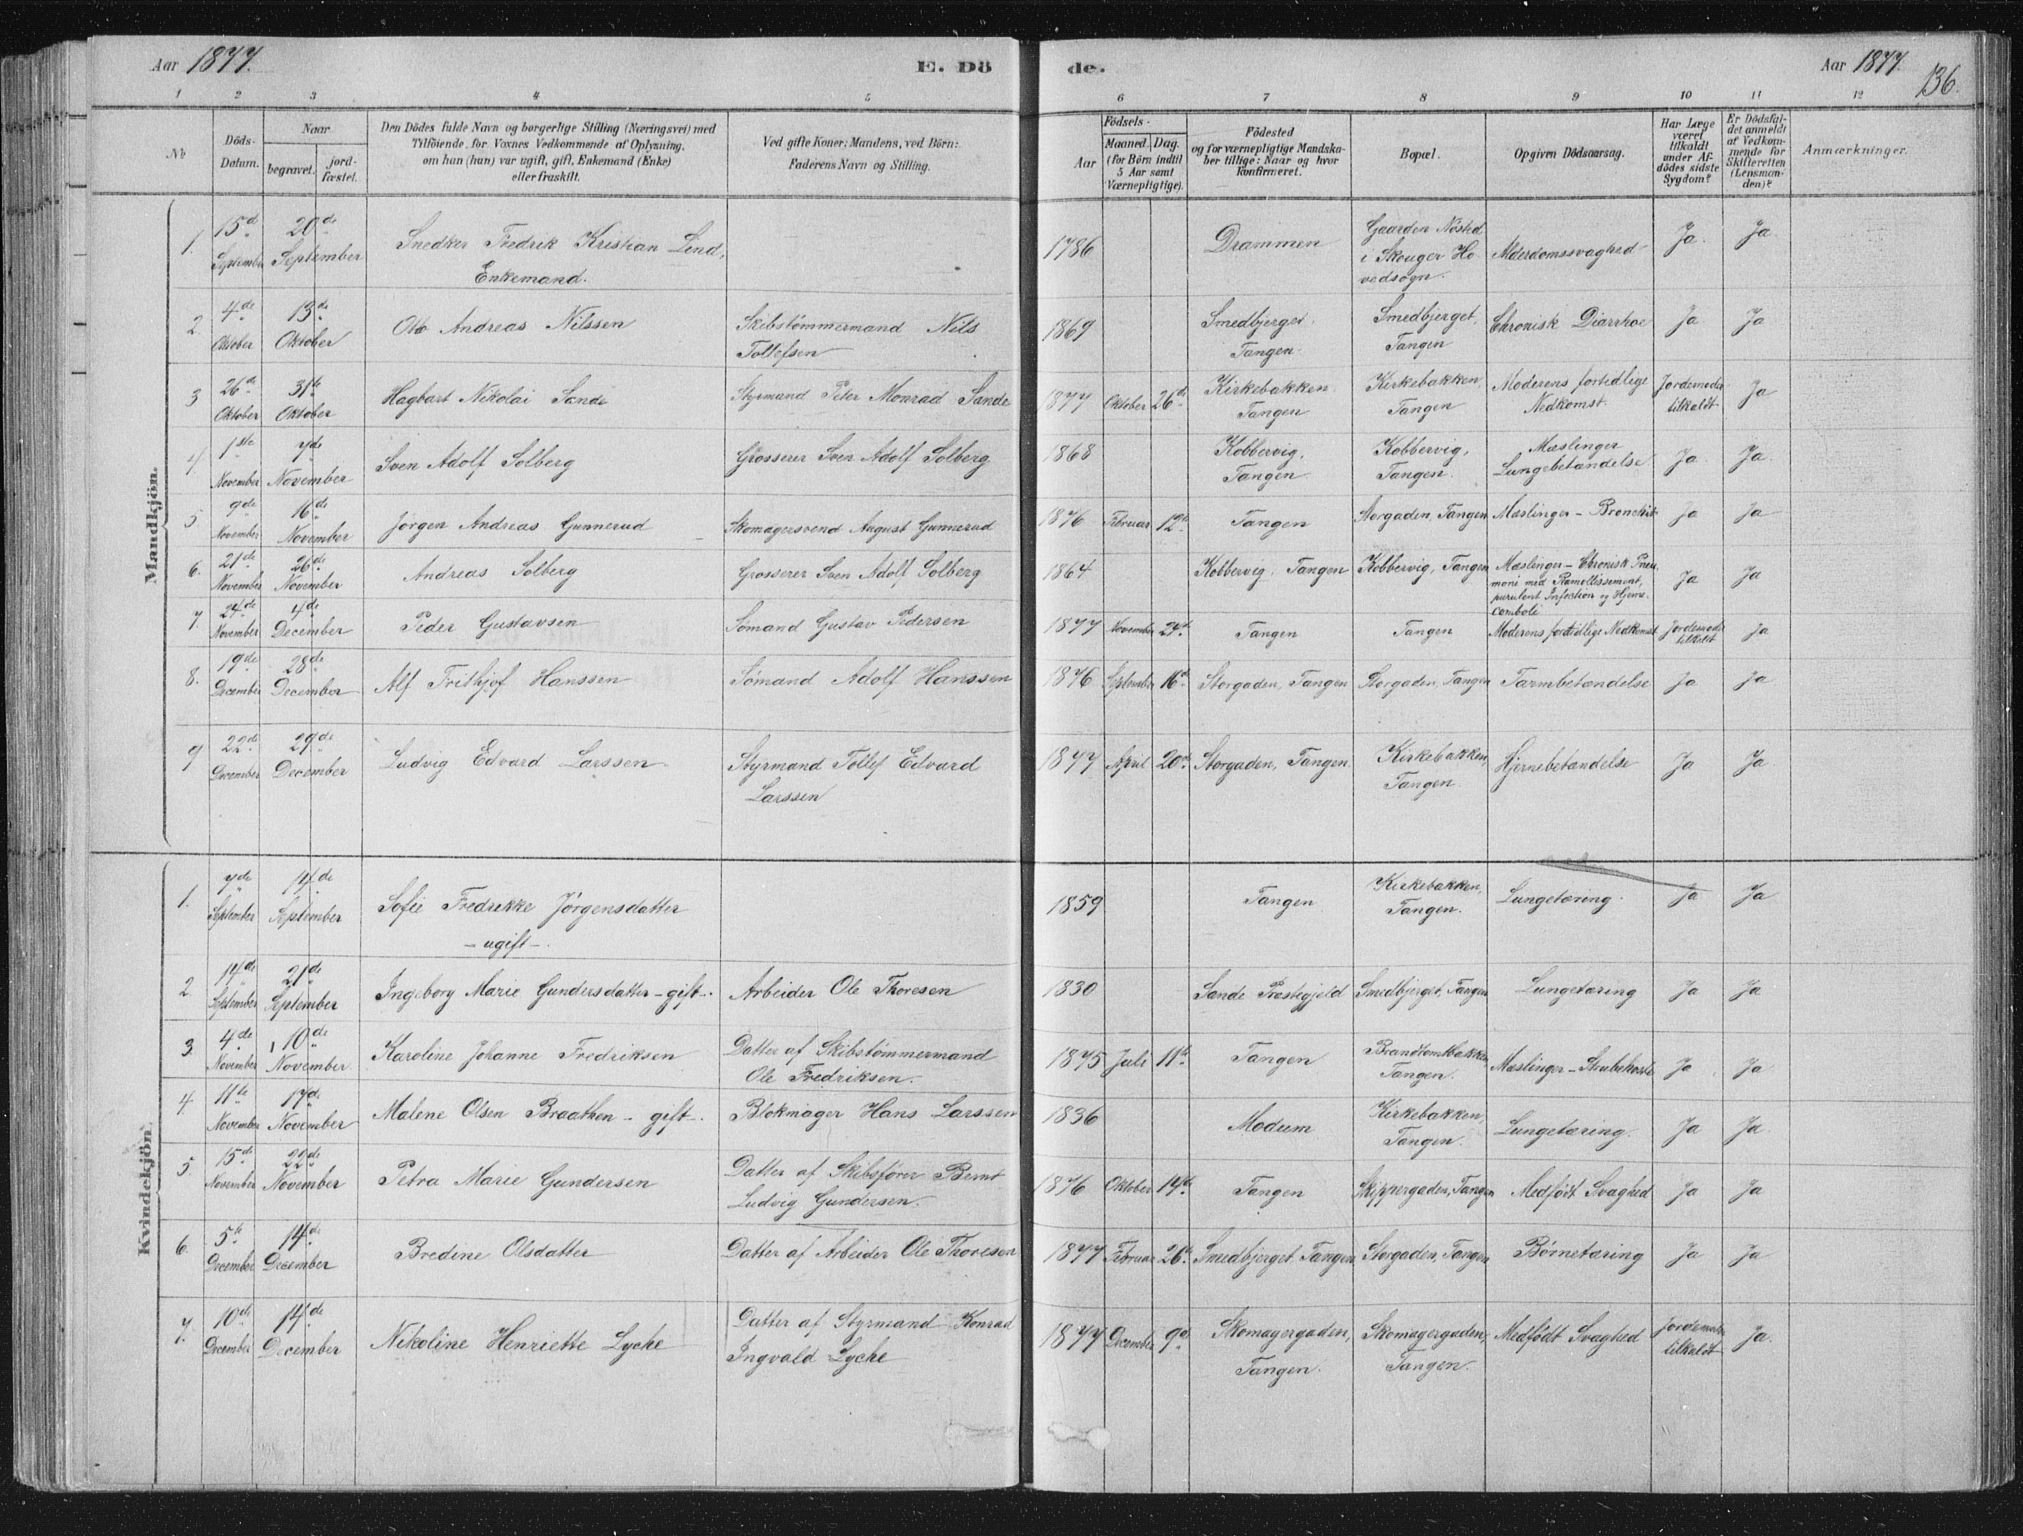 Aar 1877. E. Dö de. Aar 1877.
136.
1 2 3 4 5 6 7 8 9 10 11 12
No
Döds-Datum.
Naar
begravet.
jord-fæstet.
Den Dödes fulde Navn og borgerlige Stilling (Næringsvei) med
Tilföiende, for Voxnes Vedkommende af Oplysning,
om han (hun) var ugift, gift, Enkemand (Enke)
eller fraskilt.
Ved gifte Koner: Mandens, ved Börn:
Faderens Navn og Stilling.
Födsels-
Aar
Maaned. Dag.
(for Börn indtil
5 Aar samt
Værnepligtige).
Födested
og for værnepligtige Mandska-
ber tillige: Naar og hvor
konfirmeret.
Bopæl.
Opgiven Dödsaarsag.
Har Læge
været
tilkaldt
under Af-
dödes sidste
Sygdom?
Er Dödsfal-
det anmeldt
af Vedkom-
mende for
Skifteretten
(Lensman-
den)?
Anmærkninger.
Mandkjön.
1. 15de September 20de September Snedker Fredrik Kristian Lend, 1786 Drammen Gaarden Nøsted Alderdomssvaghed Ja. Ja.
Enkemand. i Skouger Ho
vedsogn.
2. 4de Oktober 13de Oktober Olo Andreas Nilssen Skibstømmermand Nils 1869 Smedbjerget. Smedbjerget, Chronisk Diarrhoe Ja. Ja
Tollefsen Tangen. Tangen
3 26de Oktober 31te Oktober Hagbart Nikolai Sande Styrmand Peter Monrad Sande 1877 Oktober 26de Kirkebakken Kirkebakken, Moderens fortidlige Jordemoder Ja
Tangen Tangen Nedkomst. tilkaldt
4 1ste November 7de November Sven Adolf Solberg Grosserer Sven Adolf Solberg 1868 Kobbervig, Kobbervig, Mæslinger Ja. Ja.
Tangen Tangen. Lungebetændelse
5 9de November 16de November Jørgen Andreas Gunnerud Skomagersvend August Gunnerud 1876 Februar 12te Tangen Storgaden, Tangen Mæslinger - Bronchit Ja Ja
6. 21de November 26de November Andreas Solberg Grosserer Sven Adolf Solberg 1864 Kobbervig, Tangen Kobbervig, Tangen Mæslinger - Chronisk Pneu Ja Ja
moni med Ramollissement,
purulent Infection og
7. 24de November 4de December Peder Gustavsen Sømand Gustav Pedersen 1877 November 24de Tangen Tangen Moderens fortidlige Nedkomst Jordemoder Ja
tilkaldt
8. 19de December 28de December Alf Frithjof Hanssen Sømand Adolf Hanssen 1876 September 16de Storgaden, Tangen Storgaden, Tangen Tarmbetændelse Ja Ja
9 22de December 29de December Ludvig Edvard Larssen Styrmand Tollef Edvard 1877 April 20de Storgaden, Tangen Kirkebakken, Hjernebetændelse Ja Ja
Larssen Tangen.
Kvindekjön.
1. 7de September 14de September Sofie Fredrikke Jørgensdatter 1859 Tangen Kirkebakken, Lungetæring. Ja Ja
- ugift -. Tangen.
2. 14de September 21de September Ingeborg Marie Gundersdatter - gift -. Arbeider Ole Thoresen 1830 Sande Præstegjeld Smedbjerget, Tangen Lungetæring Ja Ja
3. 4de November 10de November Karoline Johanne Fredriksen Datter af Skibstømmermand 1875 Juli 11te Tangen Brandtomtbakken Mæslinger - Strubehoste Ja Ja
Ole Fredriksen. Tangen.
4. 11te November 17de November Malene Olsen Braathen - gift -. Blokmager Hans Larssen 1836 Modum Kirkebakken, Lungetæring. Ja Ja.
Tangen.
5. 15de November 22de November Petra Marie Gundersen Datter af Skibsfører Bernt 1876 Oktober 14de Tangen Skippergaden, Tangen Medfödt Svaghed Ja Ja
Ludvig Gundersen.
6. 5te December 14de December Bredine Olsdatter Datter af Arbeider Ole Thoresen 1877 Februar 26de Smedbjerget Tangen Storgaden, Tangen Børnetæring Ja Ja
7. 10de December 14de December Nikoline Henriette Lyche Datter af Styrmand Konrad 1877 December 9de Skomagergaden, Skomagergaden, Medfödt Svaghed Jordemoder Ja.
Ingvald Lyche Tangen. Tangen. tilkaldt